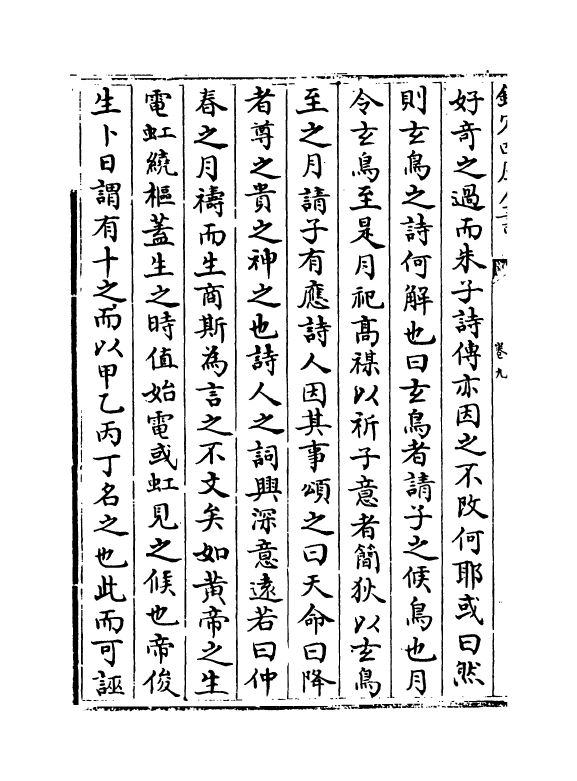 欽定四庫全書
卷九
好奇之過而朱子詩傳亦因之不改何耶或曰然
則玄鳥之詩何解也曰玄鳥者請子之候鳥也月
令玄鳥至是月祀高禖以祈子意者簡狄以玄鳥
至之月請子有應詩人因其事頌之曰天命曰降
者尊之貴之神之也詩人之詞興深意遠若曰仲
春之月禱而生商斯為言之不文矣如黃帝之生
電虹繞樞蓋生之時值始電或虹見之候也帝俊
生卜日謂有十之而以甲乙丙丁名之也此而可誣